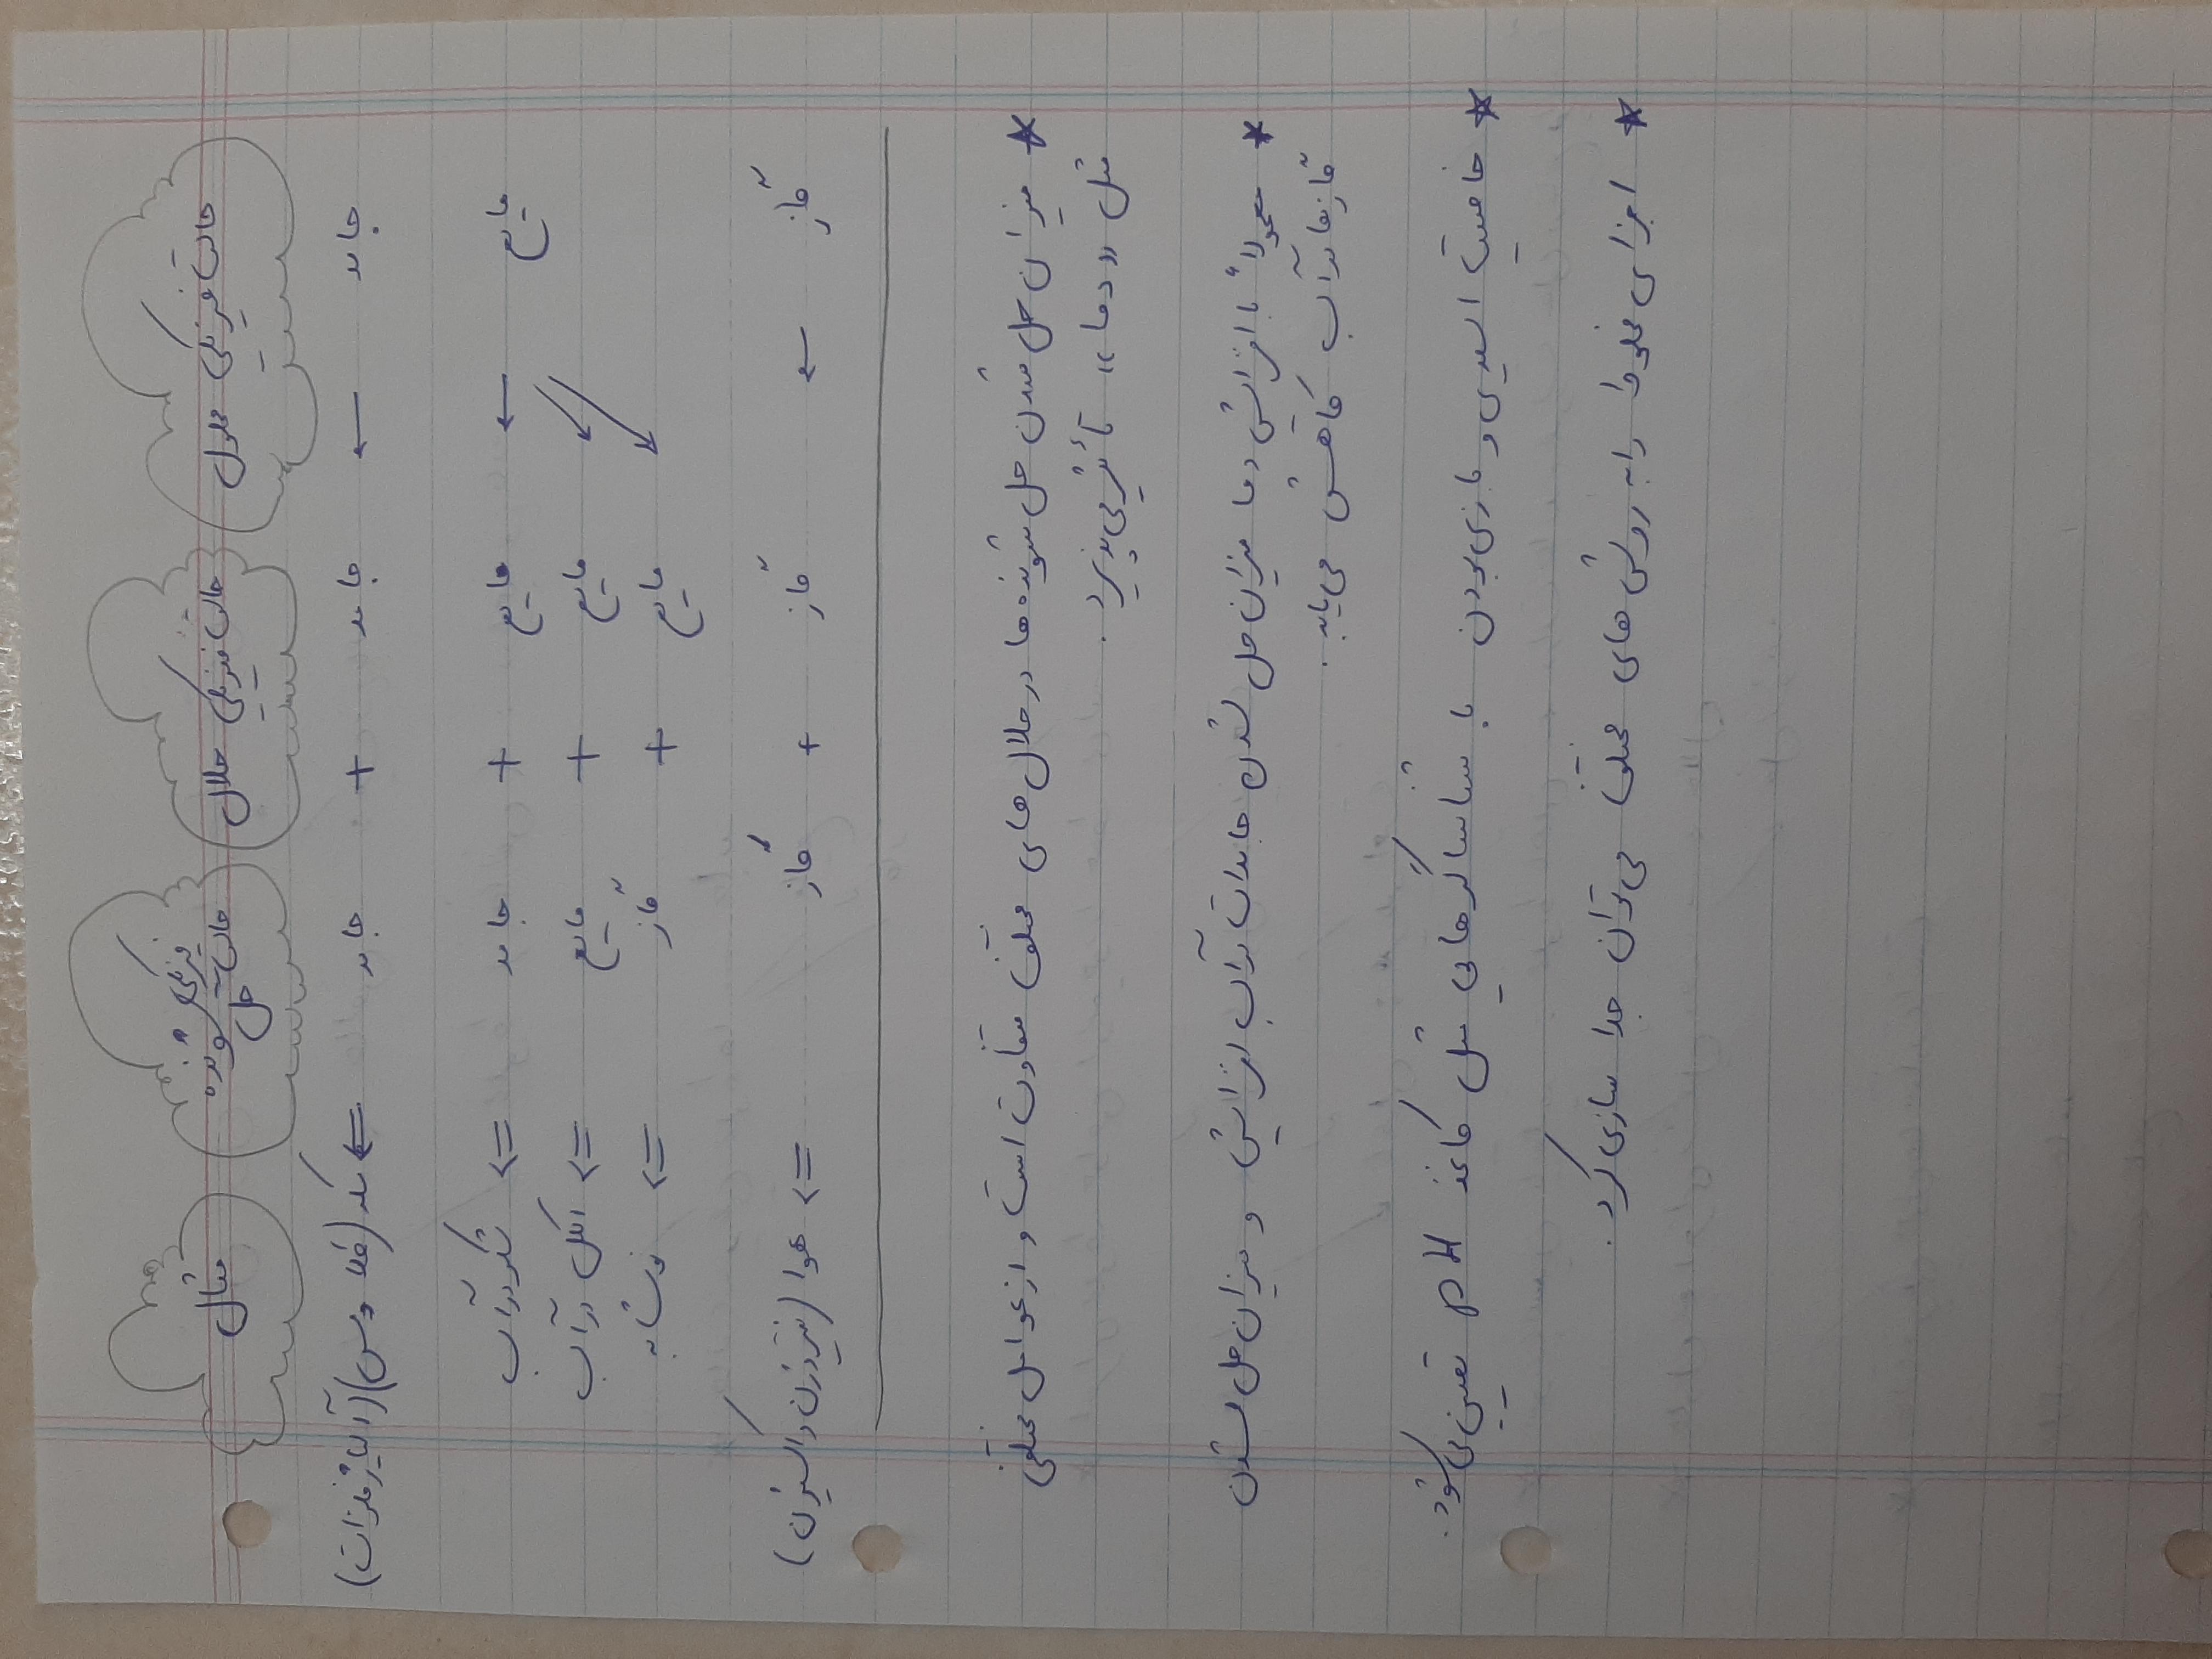 حالت فیزیکی محلول حالت فیزیکی حلال حالت فیزیکی حل شونده مثال
جامد ← جامد + جامد ⇐ سکه (طلا و مس) (آلیاژ فلزات)
مایع ← مایع + جامد ⇐ شکر در آب
↙ مایع + مایع ⇐ الکل در آب
↙ مایع + گاز ⇐ نوشابه
گاز ← گاز + گاز ⇐ هوا (نیتروژن و اکسیژن)
★ میزان حل شدن حل شونده ها در حلال های مختلف متفاوت است و از عوامل مختلفی
مثل «دما» تأثیر می پذیرد.
★ معمولاً با افزایش دما میزان حل شدن جامدات در آب افزایش و میزان حل شدن
گازها در آب کاهش می یابد.
★ خاصیت اسیدی و بازی بودن با شناساگرهایی مثل کاغذ pH تعیین می شود.
★ اجزای مخلوط را به روش های مختلف می توان جدا سازی کرد.